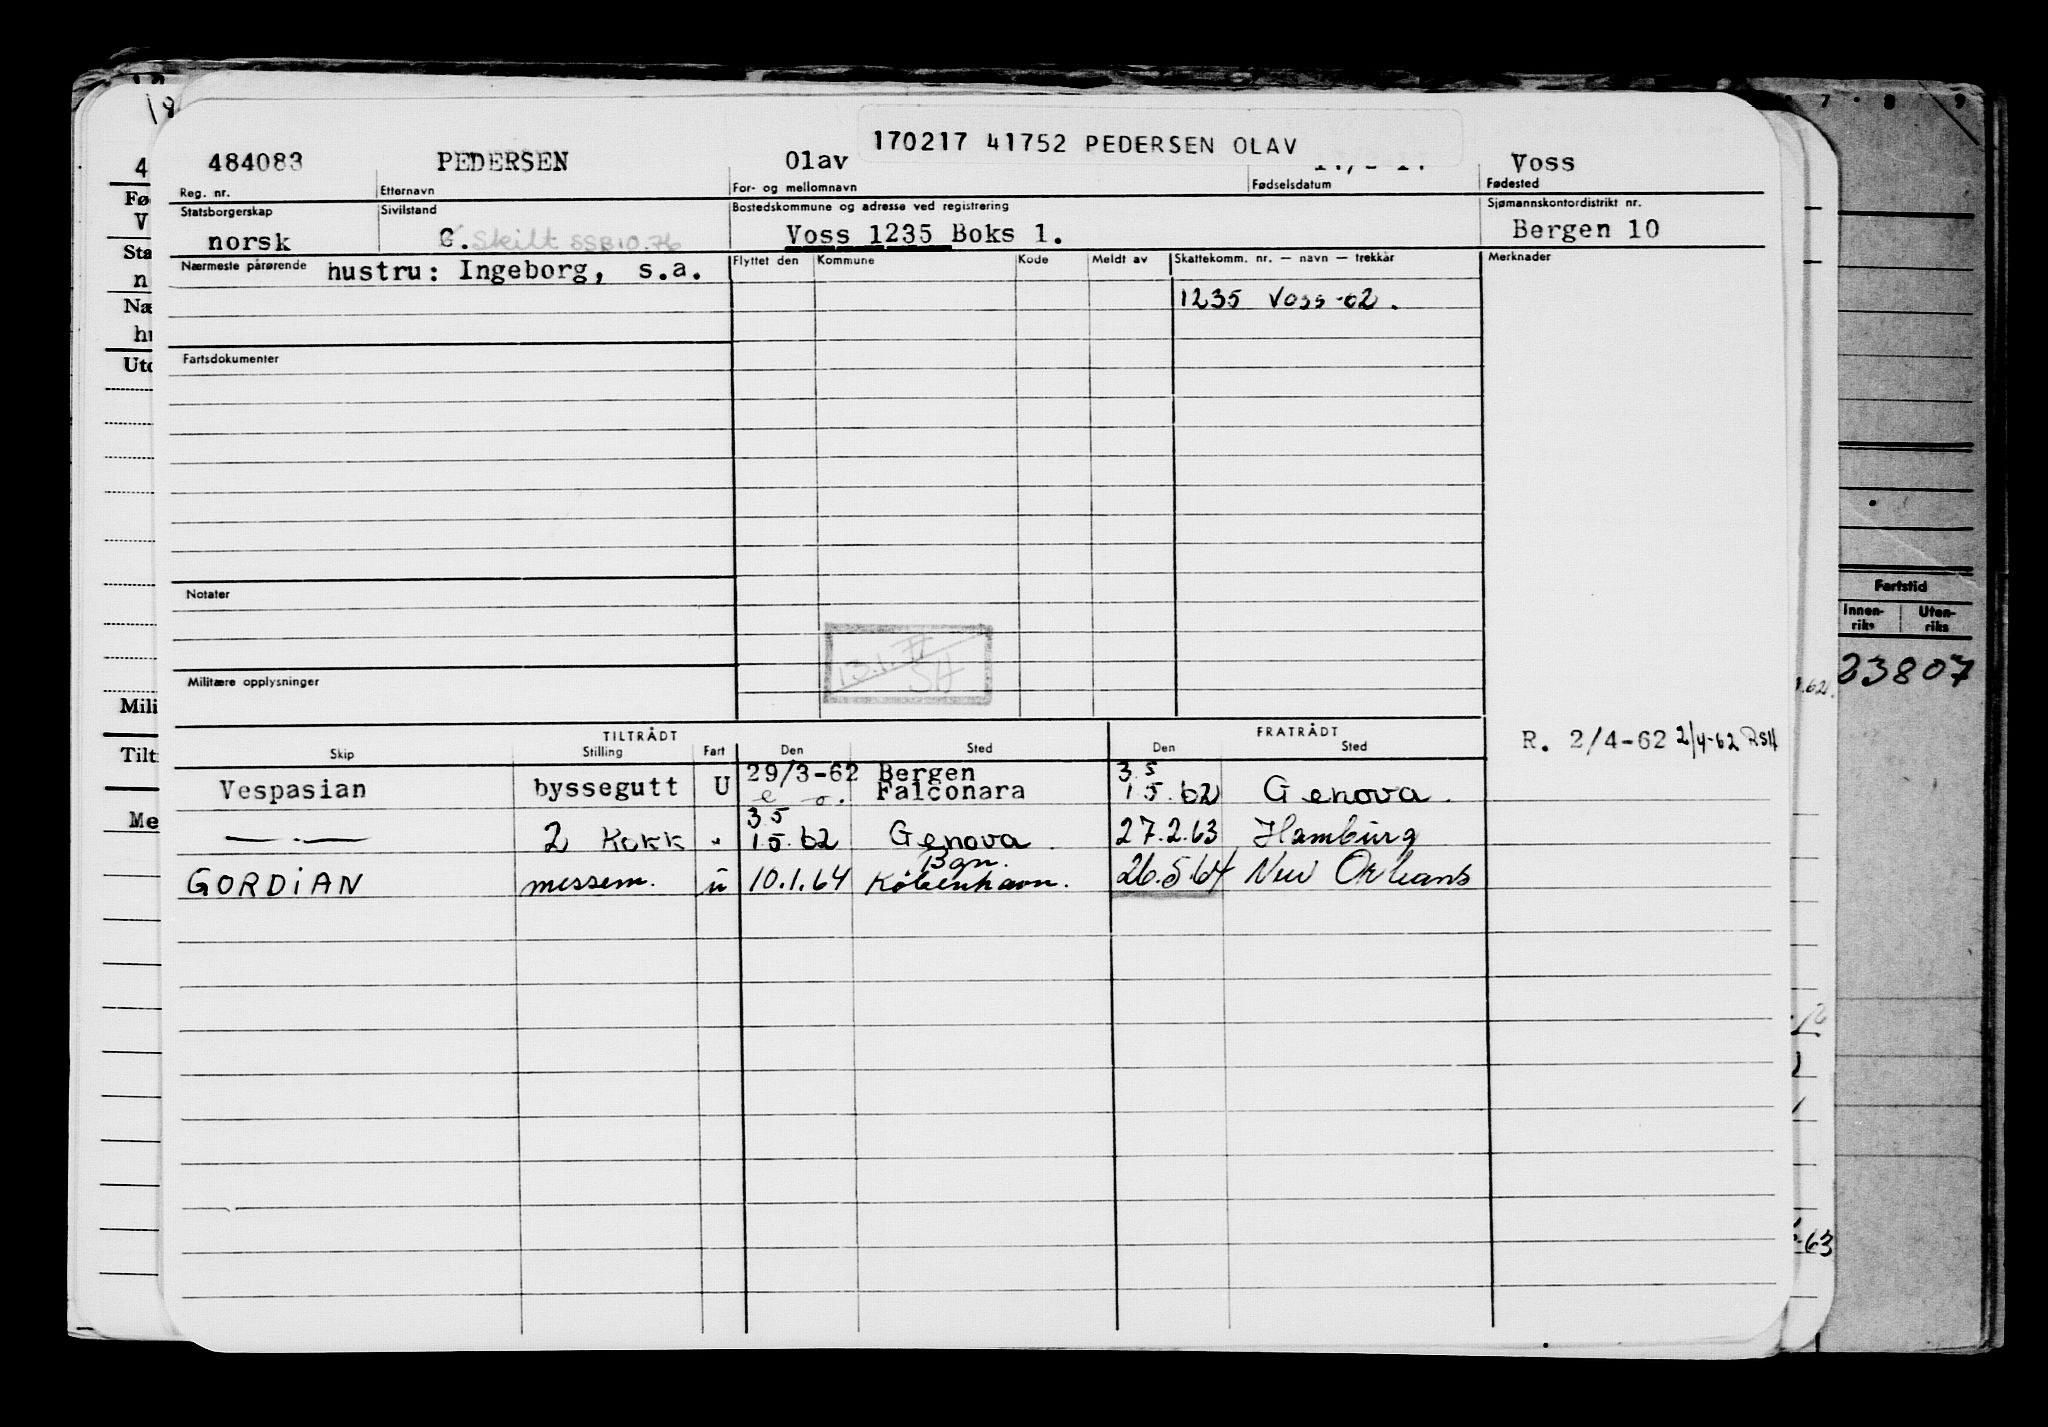 170217 41752 PEDERSEN OLAV
484083 PEDERSEN Olav Voss
Reg. nr. Etternavn For- og mellomnavn Fødselsdatum Fødested
Statsborgerskap Sivilstand Bostedskommune og adresse ved registrering Sjømannskontordistrikt nr.
norsk G. Skilt SSB 10.76 Voss 1235 Boks 1. Bergen 10
Nærmeste pårørende hustru: Ingeborg, s.a. Flyttet den Kommune Kode Meldt av Skattekomm. nr. — navn — trekkår Merknader
1235 Voss -62.
Fartsdokumenter
Notater
13.1.
SH
Militære opplysninger
TILTRÅDT FRATRÅDT
Skip Stilling Fart Den Sted Den Sted
R. 2/4-62 2/4-62 RSH
29/3-62 Bergen 3.5
Vespasian byssegutt U Falconara 15.62 Genova.
3.5
— . — 2 Kokk " 15.62 Genova. 27.2.63 Hamburg
Bgn.
GORDIAN messem. u 10.1.64 København. 26.5.64 New Orleans
Fartstid
Innen-
riks
Uten-
riks
23807
Mili
Tilt
Me
-63